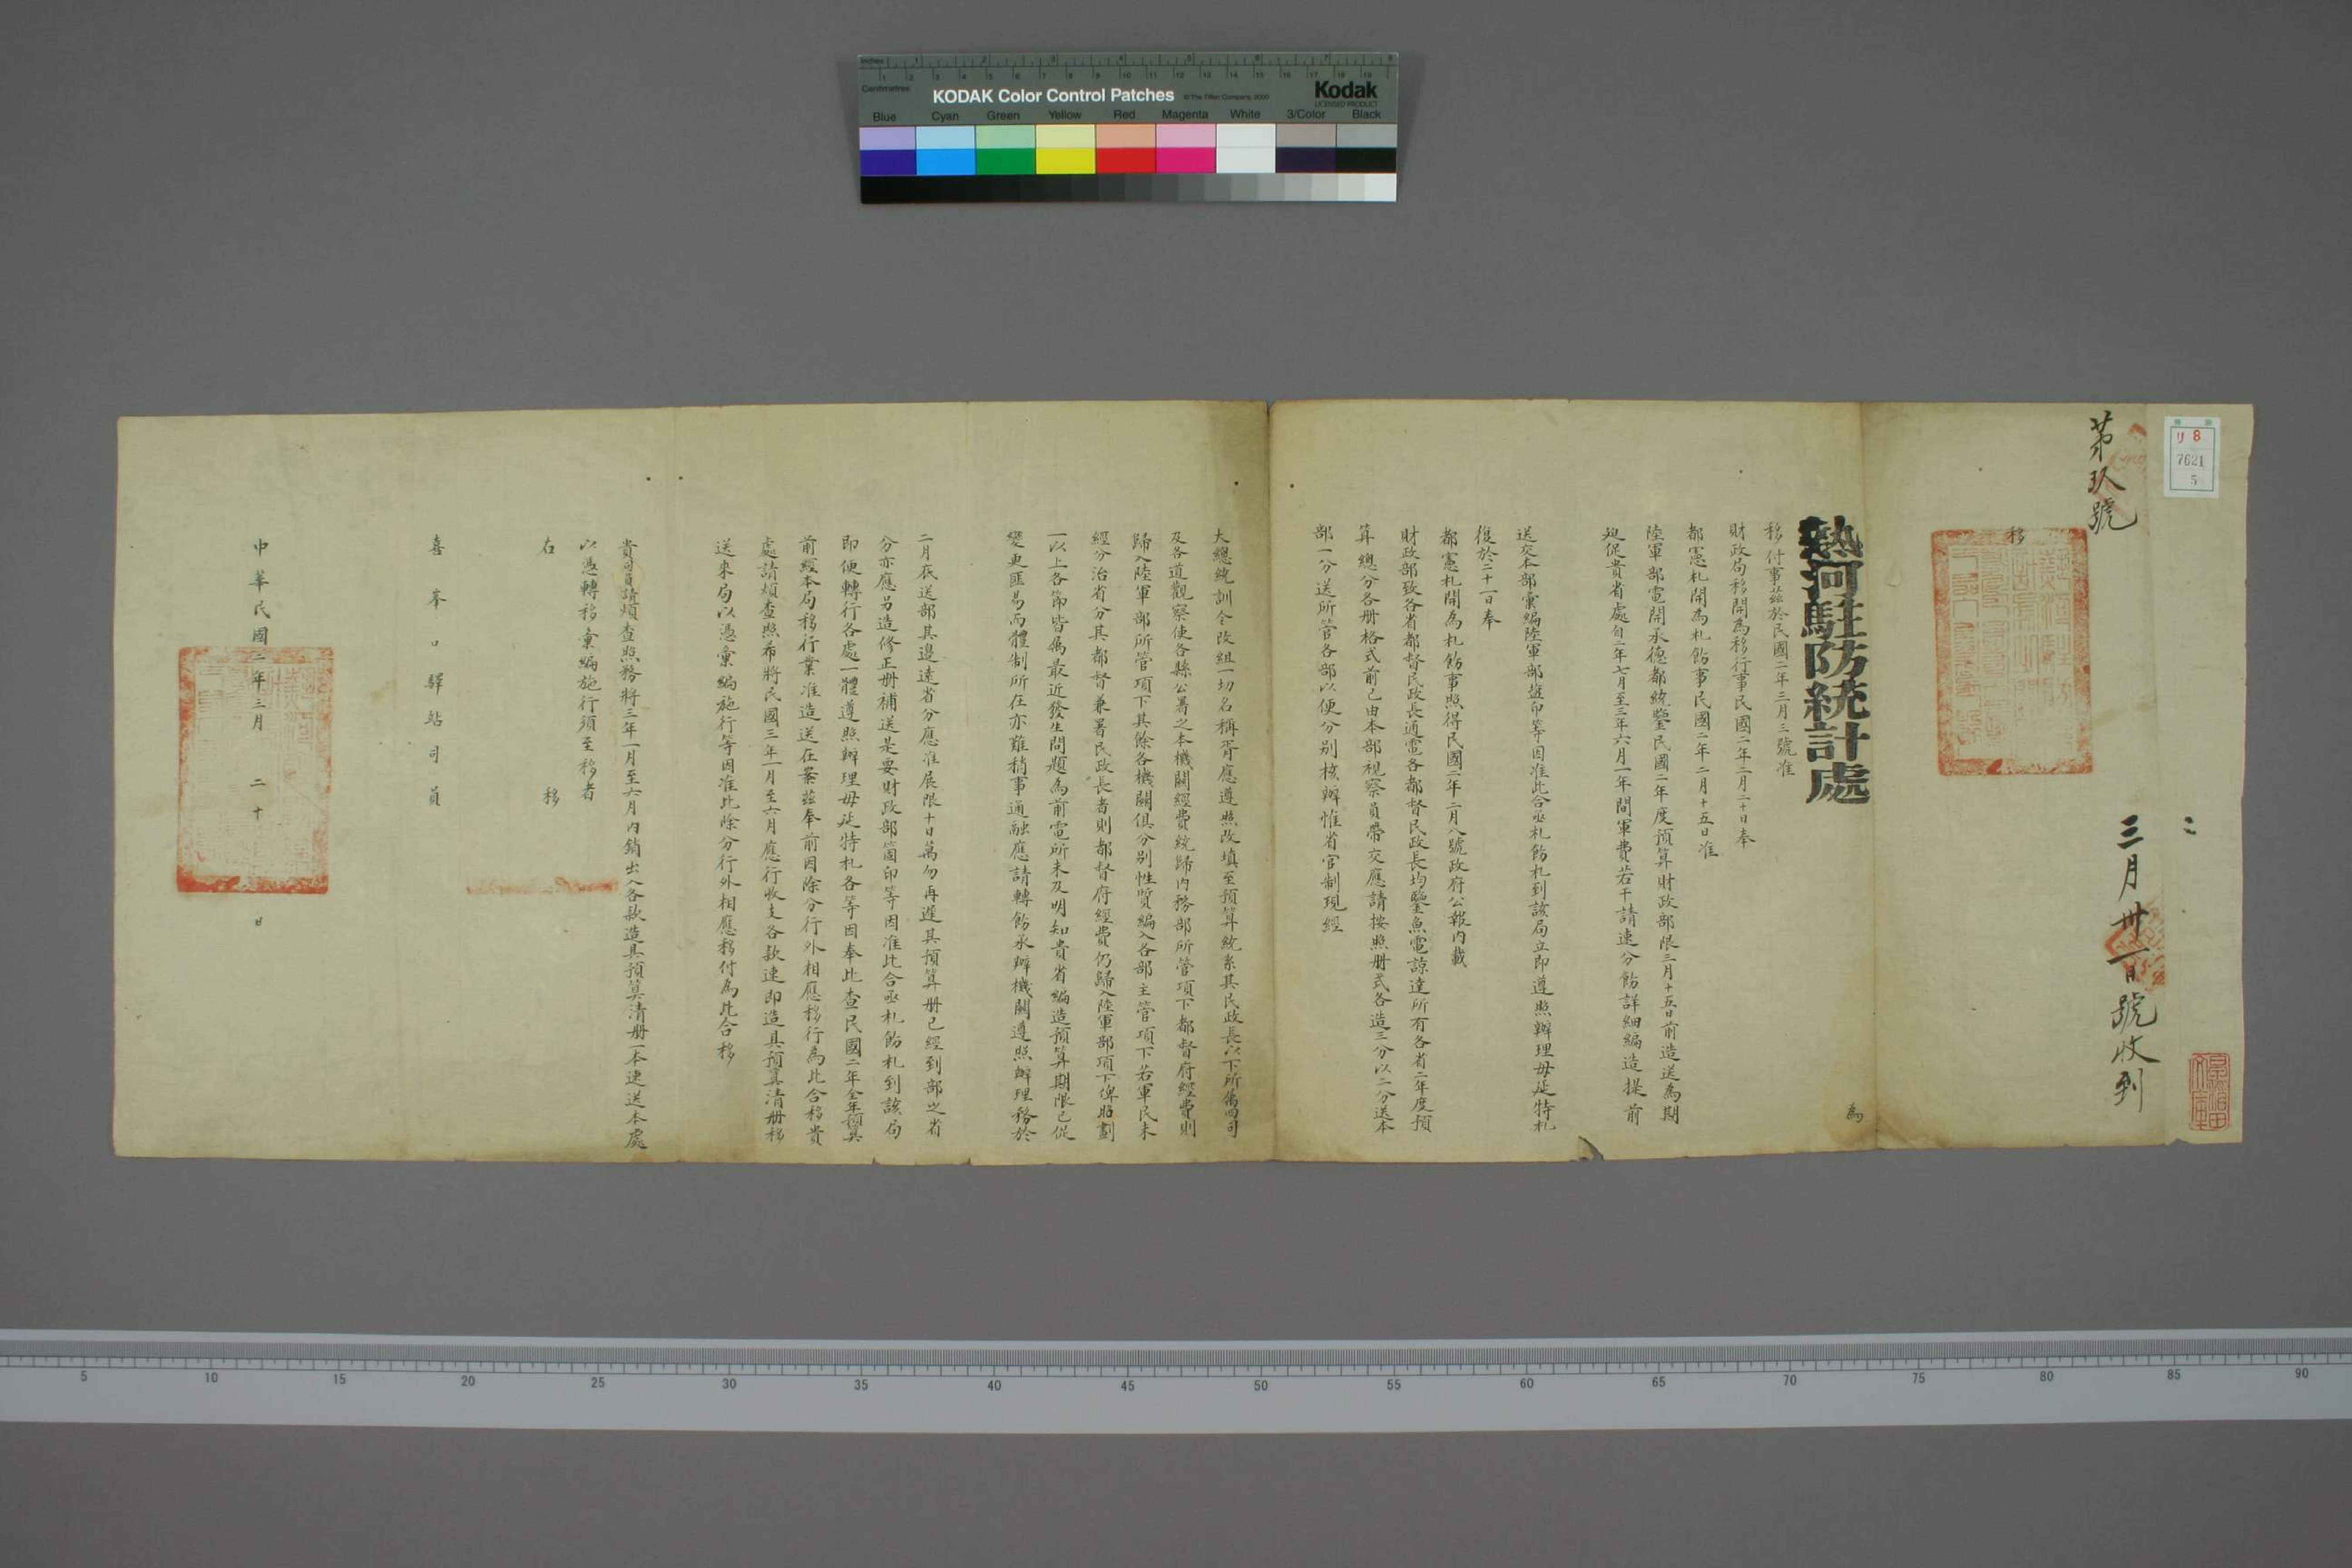 Inches 1 2 3 4 5 6 7 8
Centimetres 1 2 3 4 5 6 7 8 9 10 11 12 13 14 15 16 17 18 19
KODAK Color Control Patches
© The Tiffen Company, 2000
Kodak
LICENSED PRODUCT
Blue Cyan Green Yellow Red Magenta White 3/Color Black
リ 8
7621
5
第玖號
三月卅一日號收到
移
熱河駐防統計處
為
移付事茲於民國二年三月三號准
財政局移開為移行事民國二年二月二十日奉
都憲札開為札飭事民國二年二月十五日准
陸軍部電開承德都統鑒民國二年度預算財政部限三月十五日前造送為期
迫促貴省處自二年七月至三年六月一年間軍費若干請速分飭詳細編造提前
送交本部彙編陸軍部蓋印等因准此合亟札飭札到該局立即遵照辦理毋延特札
復於二十一日奉
都憲札開為札飭事照得民國二年二月八號政府公報內載
財政部致各省都督民政長通電各都督民政長均鑒魚電諒達所有各省二年度預
算總分各册格式前已由本部視察員帶交應請按照册式各造三分以二分送本
部一分送所管各部以便分別核辦惟省官制現經
大總統訓令改組一切名稱胥應遵照改填至預算統系其民政長以下所屬四司
及各道觀察使各縣公署之本機關經費統歸內務部所管項下都督府經費則
歸入陸軍部所管項下其餘各機關俱分別性質編入各部主管項下若軍民未
經分治省分其都督兼署民政長者則都督府經費仍歸入陸軍部項下俾昭劃
一以上各節皆屬最近發生問題為前電所未及明知貴省編造預算期限已促
變更匪易而體制所在亦難稍事通融應請轉飭承辦機關遵照辦理務於
二月底送部其邊遠省分應准展限十日萬勿再遲其預算册已經到部之省
分亦應另造修正册補送是要財政部箇印等因准此合亟札飭札到該局
即便轉行各處一體遵照辦理毋延特札各等因奉此查民國二年全年預算
前經本局移行業准造送在案茲奉前因除分行外相應移行為此合移貴
處請煩查照希將民國三年一月至六月應行收支各款速即造具預算清册移
送來局以憑彙編施行等因准此除分行外相應移付為此合移
貴司員請煩查照務將三年一月至六月內銷出入各款造具預算清册一本速送本處
以憑轉移彙編施行須至移者
右 移
喜峯口驛站司員
中華民國二年三月 二十 日
5 10 15 20 25 30 35 40 45 50 55 60 65 70 75 80 85 90